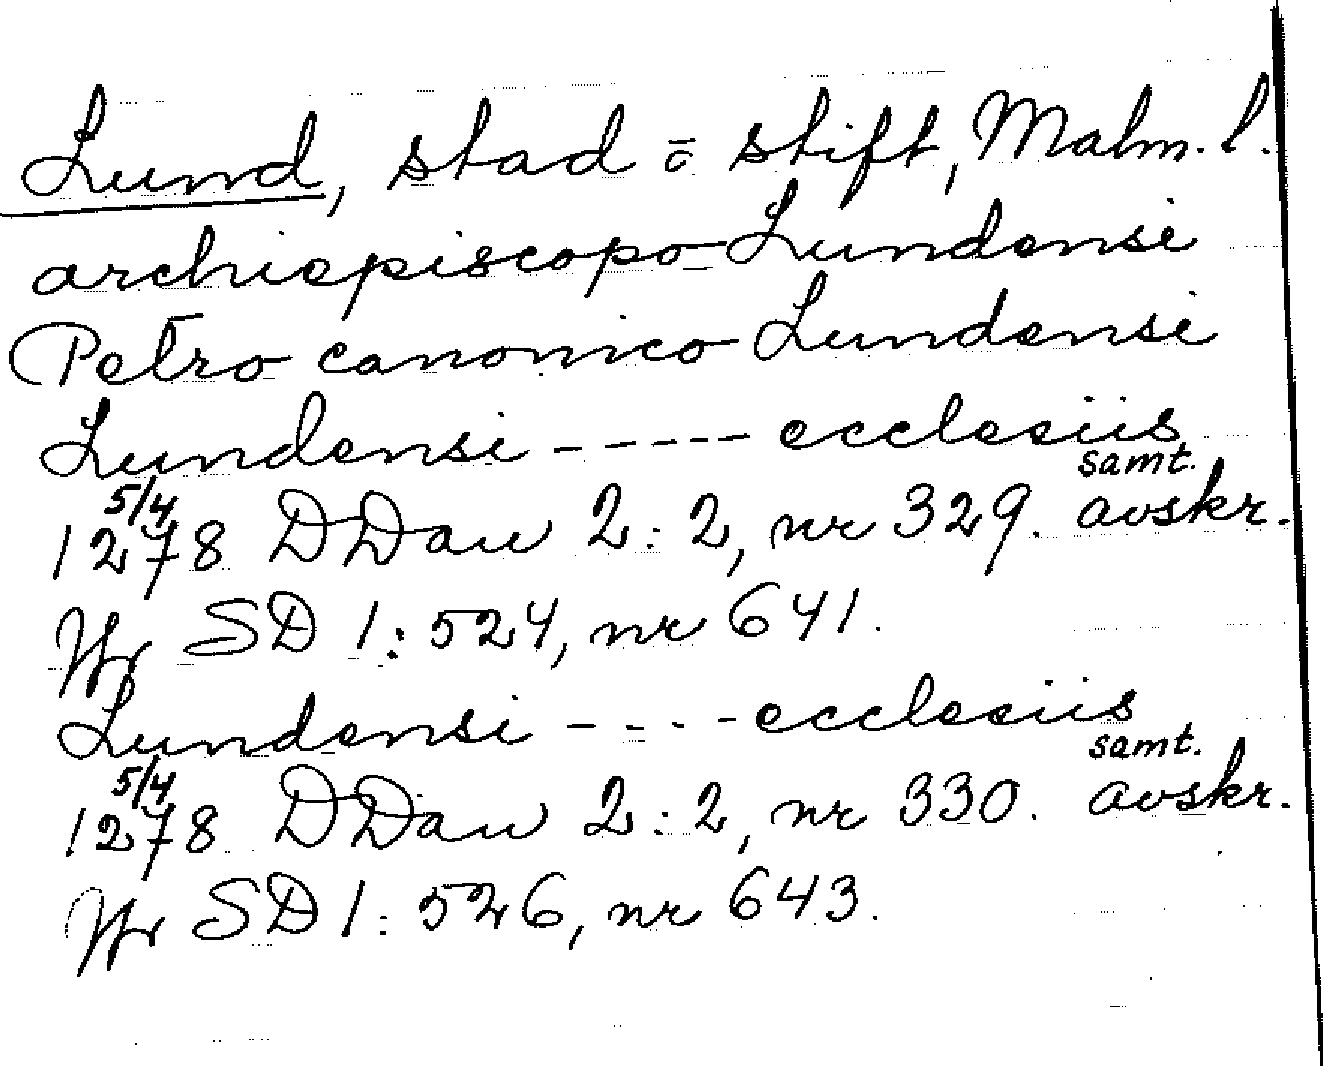 Lund, stad o stift, Malm. l.
archiepiscopo Lundensi
Petro canonico Lundensi
Lundensi ----- ecclesiis
samt.
5/4
1278 DDan 2:2, nr 329. avskr.
Jfr SD 1:524, nr 641.
Lundensi ---- ecclesiis
samt.
5/4
1278 DDan 2:2, nr 330. avskr.
Jfr SD 1:526, nr 643.